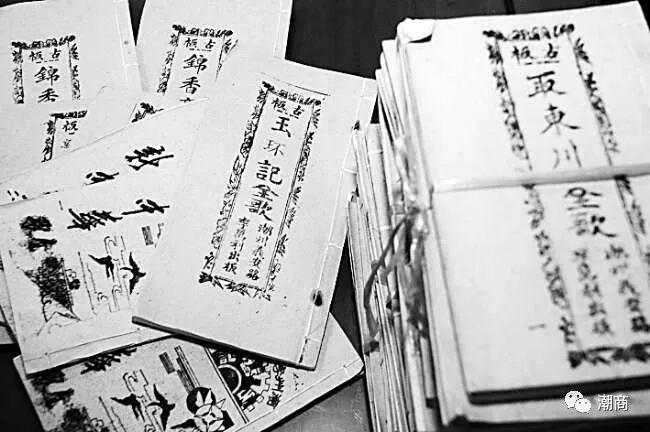 古板
錦香
古板
錦香
板
古板
玉环記全歌
潮州義安路
李萬利出板
古板
取東川
全歌
潮州義安路
李萬利出板
一
潮商